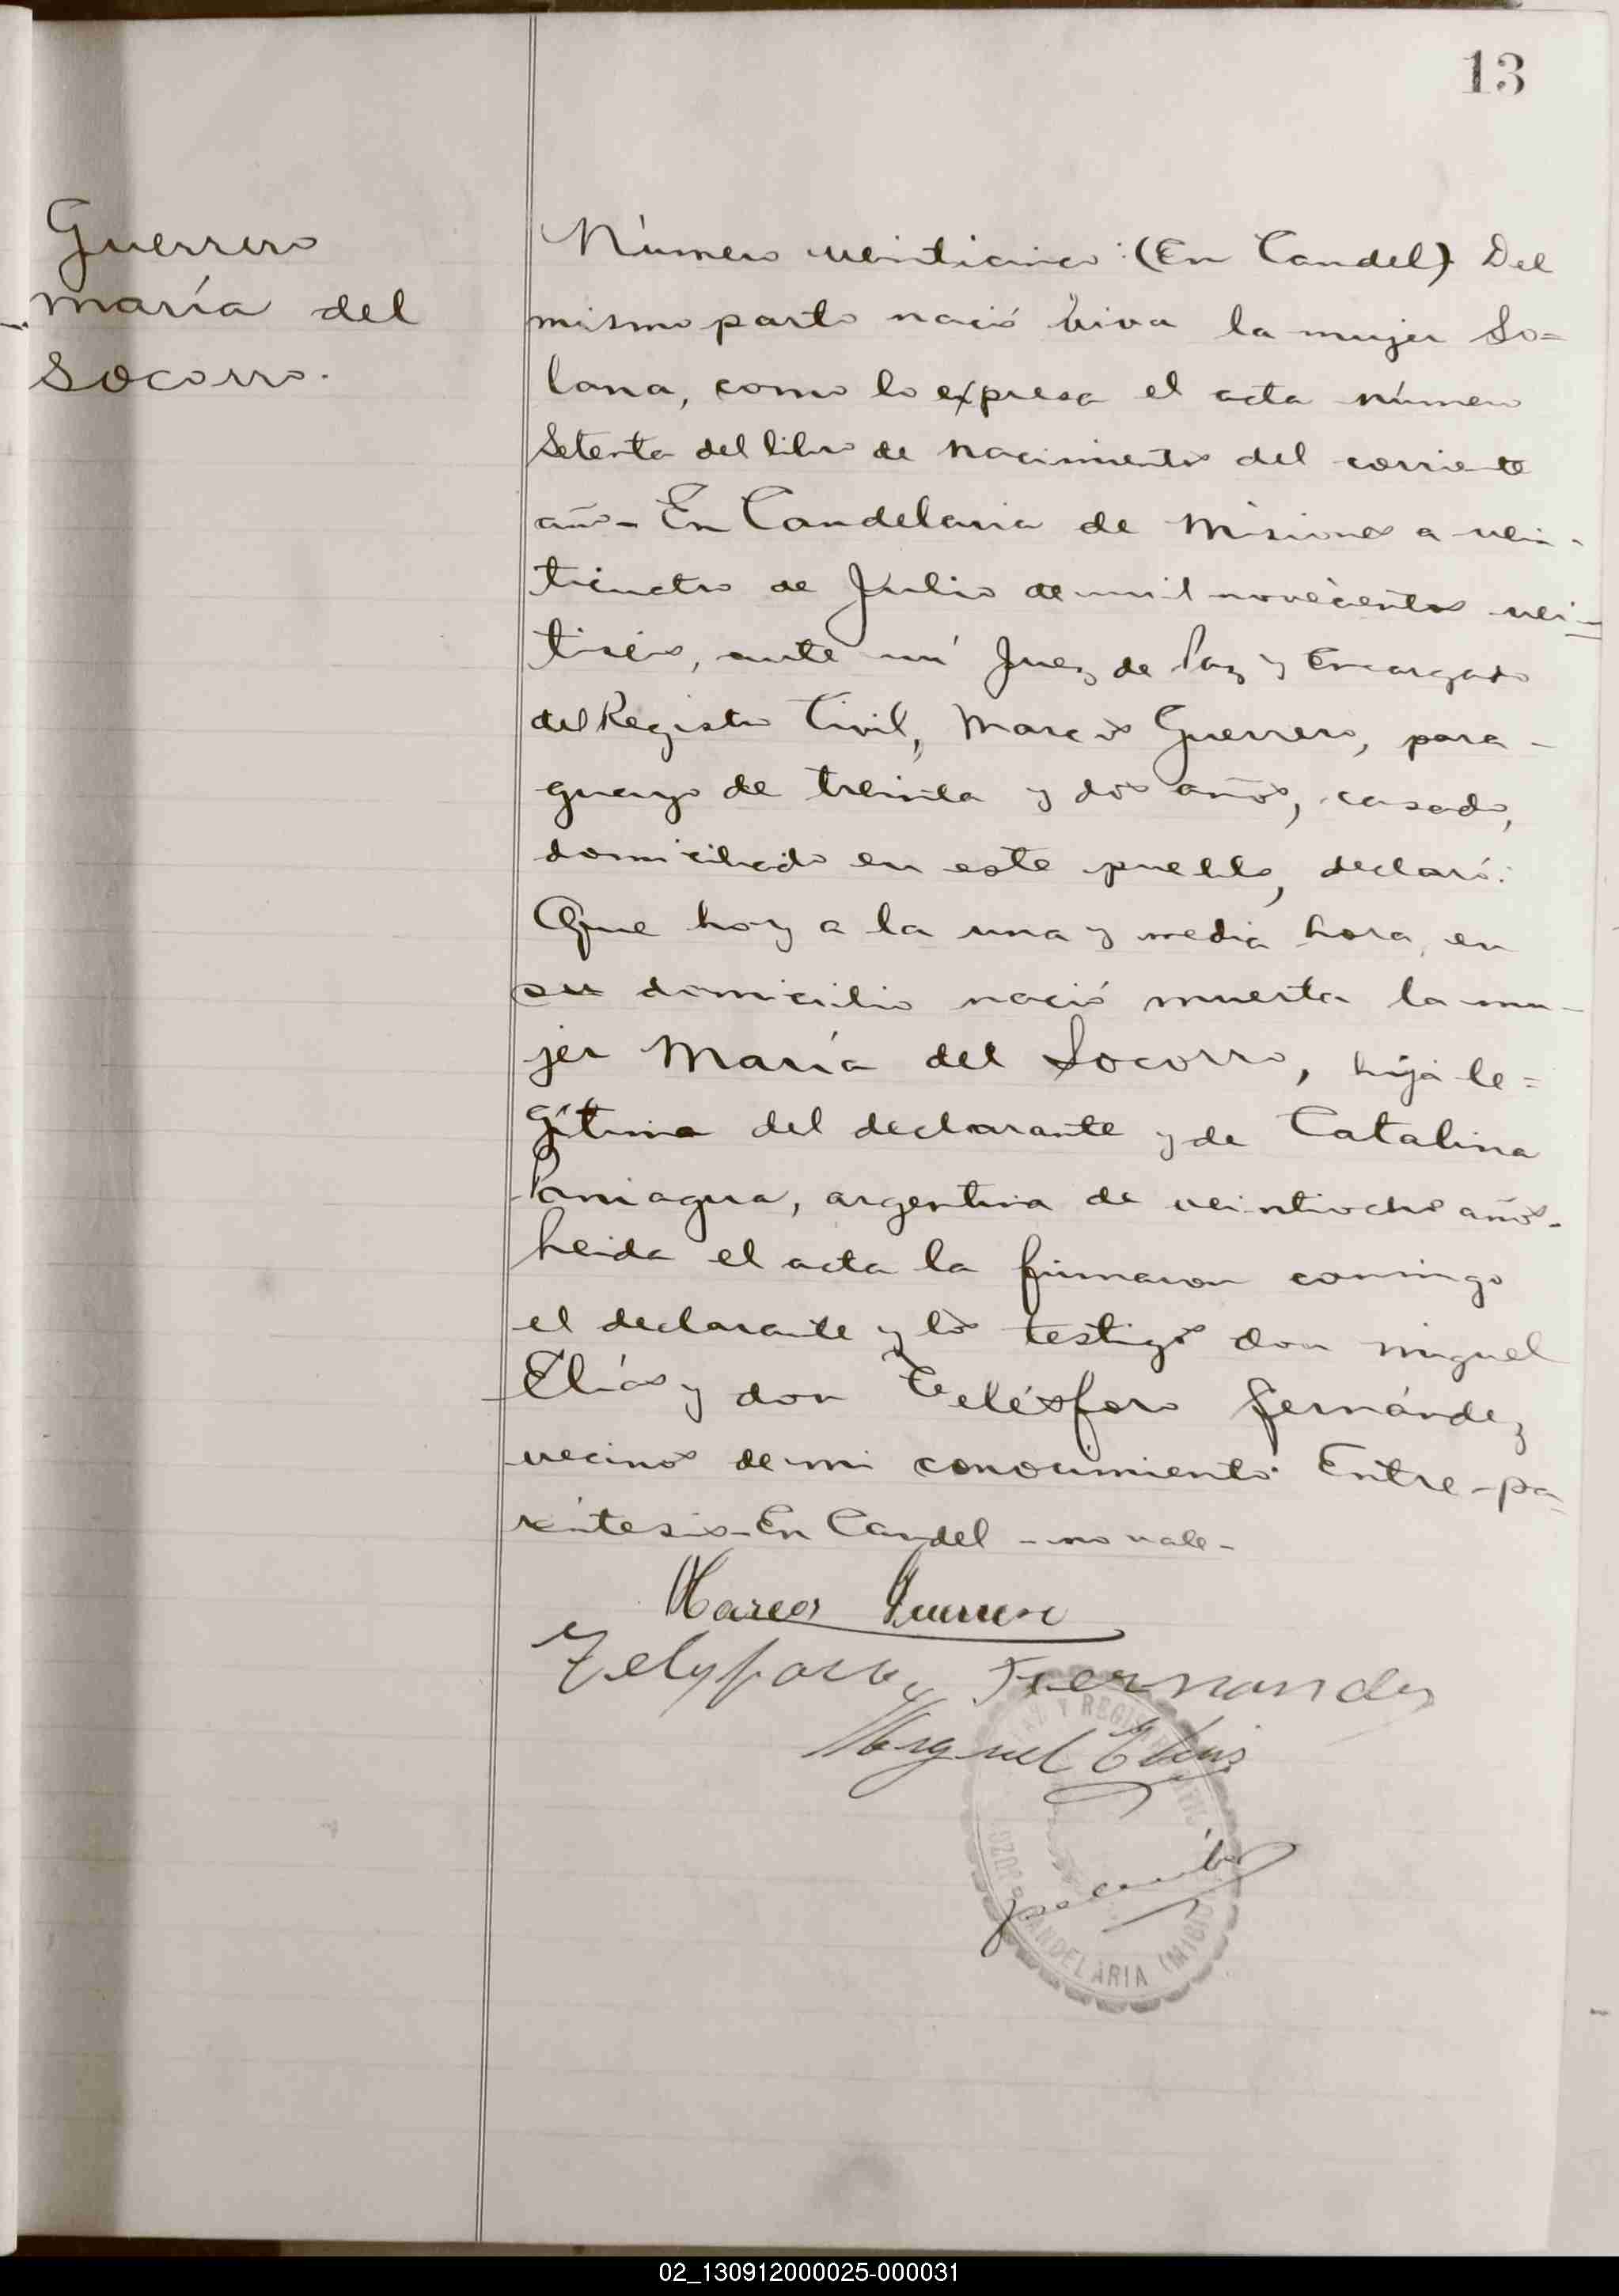 13
Guerrero
María del
Socorro.
Número veinticinco: (En Candel) Del
mismo parto nació viva la mujer So=
lana, como lo expresa el acta número
Setenta del libro de nacimientos del corriente
año - En Candelaria de Misiones a vein-
ticuatro de Julio de mil novecientos vein-
tiseis, ante mí Juez de Paz y Encargado
del Registro Civil, Marcos Guerrero, para-
guayo de treinta y dos años, casado,
domiciliado en este pueblo, declaró:
Que hoy a la una y media hora, en
su domicilio nació muerta la mu-
jer María del Socorro, hija le=
gítima del declarante y de Catalina
Paniagua, argentina de veintiocho años-
Leida el acta la firmaron conmigo
el declarante y los testigos don Miguel
Elías y don Telésforo Fernández
vecinos de mi conocimiento. Entre-pa-
réntesis-En Candel - no vale -
Marcos Guerrero
Telesforo Fernandez
Miguel Elias
PAZ Y REGISTRO CIVIL
JUZG
CANDELARIA (MISIO
02_130912000025-000031